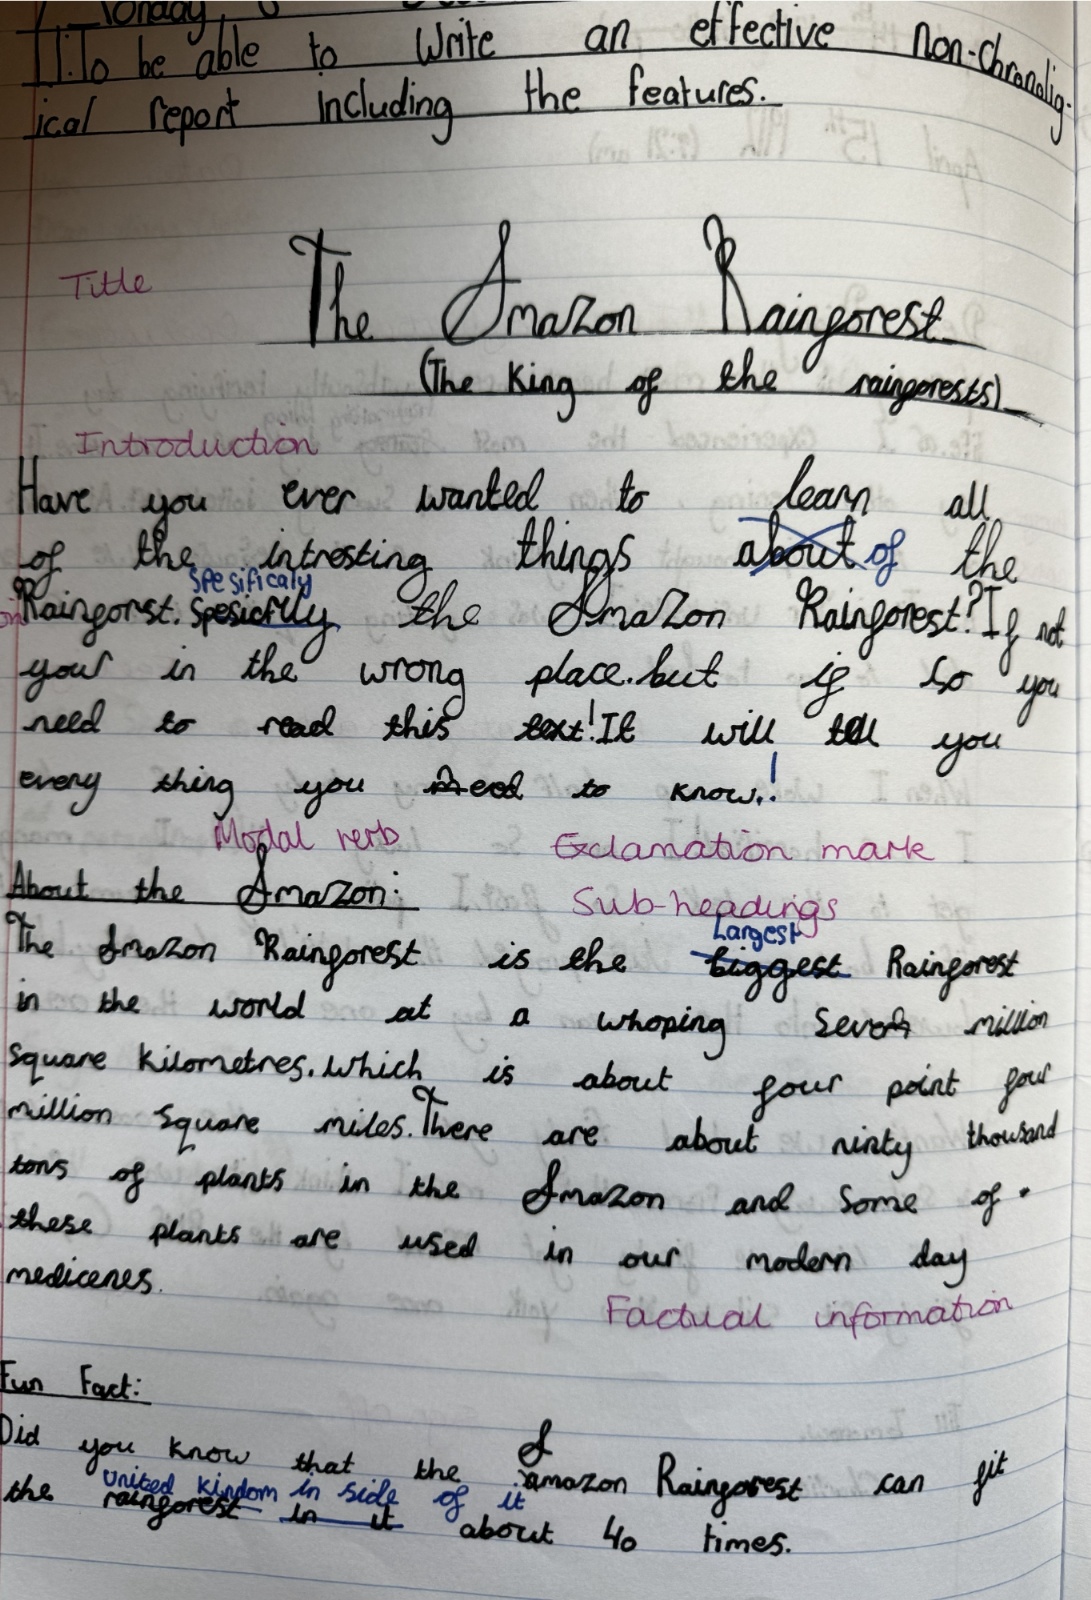 L.I: To be able to write an effective non-chronolig-
ical report including the features.
Title
The Amazon Rainforest
(The King of the rainforests)
Introduction
Have you ever wanted to learn all
of the intresting things about of the
spesificaly
Rainforst. Spesicflly the Amazon Rainforest? If not
your in the wrong place. but if so you
need to read this text! It will tell you
every thing you need to know.!
Modal verb Exclamation mark
About the Amazon: Sub-headings
Largest
The Amazon Rainforest is the biggest Rainforest
in the world at a whoping seven million
square kilometres. which is about four point four
million square miles. There are about ninty thousand
tons of plants in the Amazon and some of
these plants are used in our modern day
medicenes.
Factual information
Fun Fact:
Did you know that the Amazon Rainforest can fit
united kindom in side of it
the rainforest in it about 40 times.